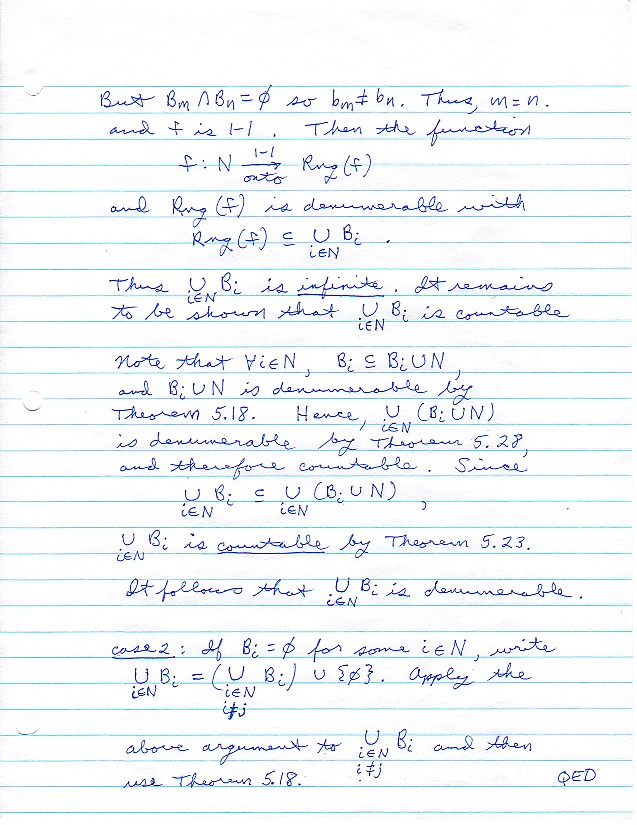 But Bm ∩ Bn = ∅ so bm ≠ bn. Thus, m = n.
and f is 1-1. Then the function
f: N 1-1 onto → Rng(f)
and Rng(f) is denumerable with
Rng(f) ⊆ ∪ i∈N Bi.
Thus ∪ i∈N Bi is infinite. It remains
to be shown that ∪ i∈N Bi is countable
Note that ∀i∈N, Bi ⊆ Bi∪N,
and Bi∪N is denumerable by
Theorem 5.18. Hence, ∪ i∈N (Bi∪N)
is denumerable by Theorem 5.28,
and therefore countable. Since
∪ i∈N Bi ⊆ ∪ i∈N (Bi∪N),
∪ i∈N Bi is countable by Theorem 5.23.
It follows that ∪ i∈N Bi is denumerable.
case 2: If Bi = ∅ for some i∈N, write
∪ i∈N Bi = (∪ i∈N i≠j Bi) ∪ {∅}. Apply the
above argument to ∪ i∈N i≠j Bi and then
use Theorem 5.18. QED